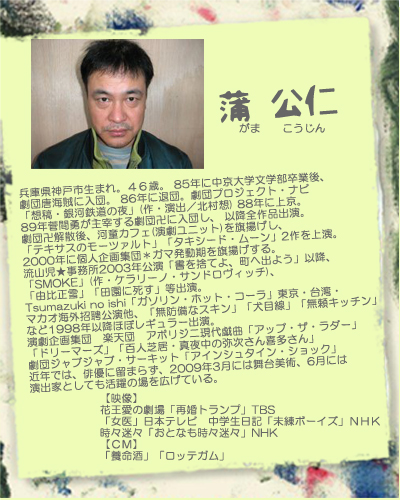 蒲 公仁
がま こうじん
兵庫県神戸市生まれ。４６歳。 85年に中京大学文学部卒業後、
劇団唐海賊に入団。 86年に退団。劇団プロジェクト・ナビ
「想稿・銀河鉄道の夜」(作・演出／北村想) 88年に上京。
89年菅間勇が主宰する劇団卍に入団し、以降全作品出演。
劇団卍解散後、河童カフェ(演劇ユニット)を旗揚げし、
「テキサスのモーツァルト」「タキシード・ムーン」2作を上演。
2000年に個人企画集団＊ガマ発動期を旗揚げする。
流山児★事務所2003年公演「書を捨てよ、町へ出よう」以降、
「SMOKE」(作・ケラリーノ・サンドロヴィッチ)、
「由比正雪」「田園に死す」等出演。
Tsumazuki no ishi「ガソリン・ホット・コーラ」東京・台湾・
マカオ海外招聘公演他、「無防備なスキン」「犬目線」「無頼キッチン」
など1998年以降ほぼレギュラー出演。
演劇企画集団 楽天団 アボリジニ現代戯曲「アップ・ザ・ラダー」
「ドリーマーズ」「百人芝居・真夜中の弥次さん喜多さん」
劇団ジャブジャブ・サーキット「アインシュタイン・ショック」
近年では、俳優に留まらず、2009年3月には舞台美術、6月には
演出家としても活躍の場を広げている。
【映像】
花王愛の劇場「再婚トランプ」TBS
「女医」日本テレビ 中学生日記「未練ボーイズ」ＮＨＫ
時々迷々「おとなも時々迷々」NHK
【ＣＭ】
「養命酒」「ロッテガム」